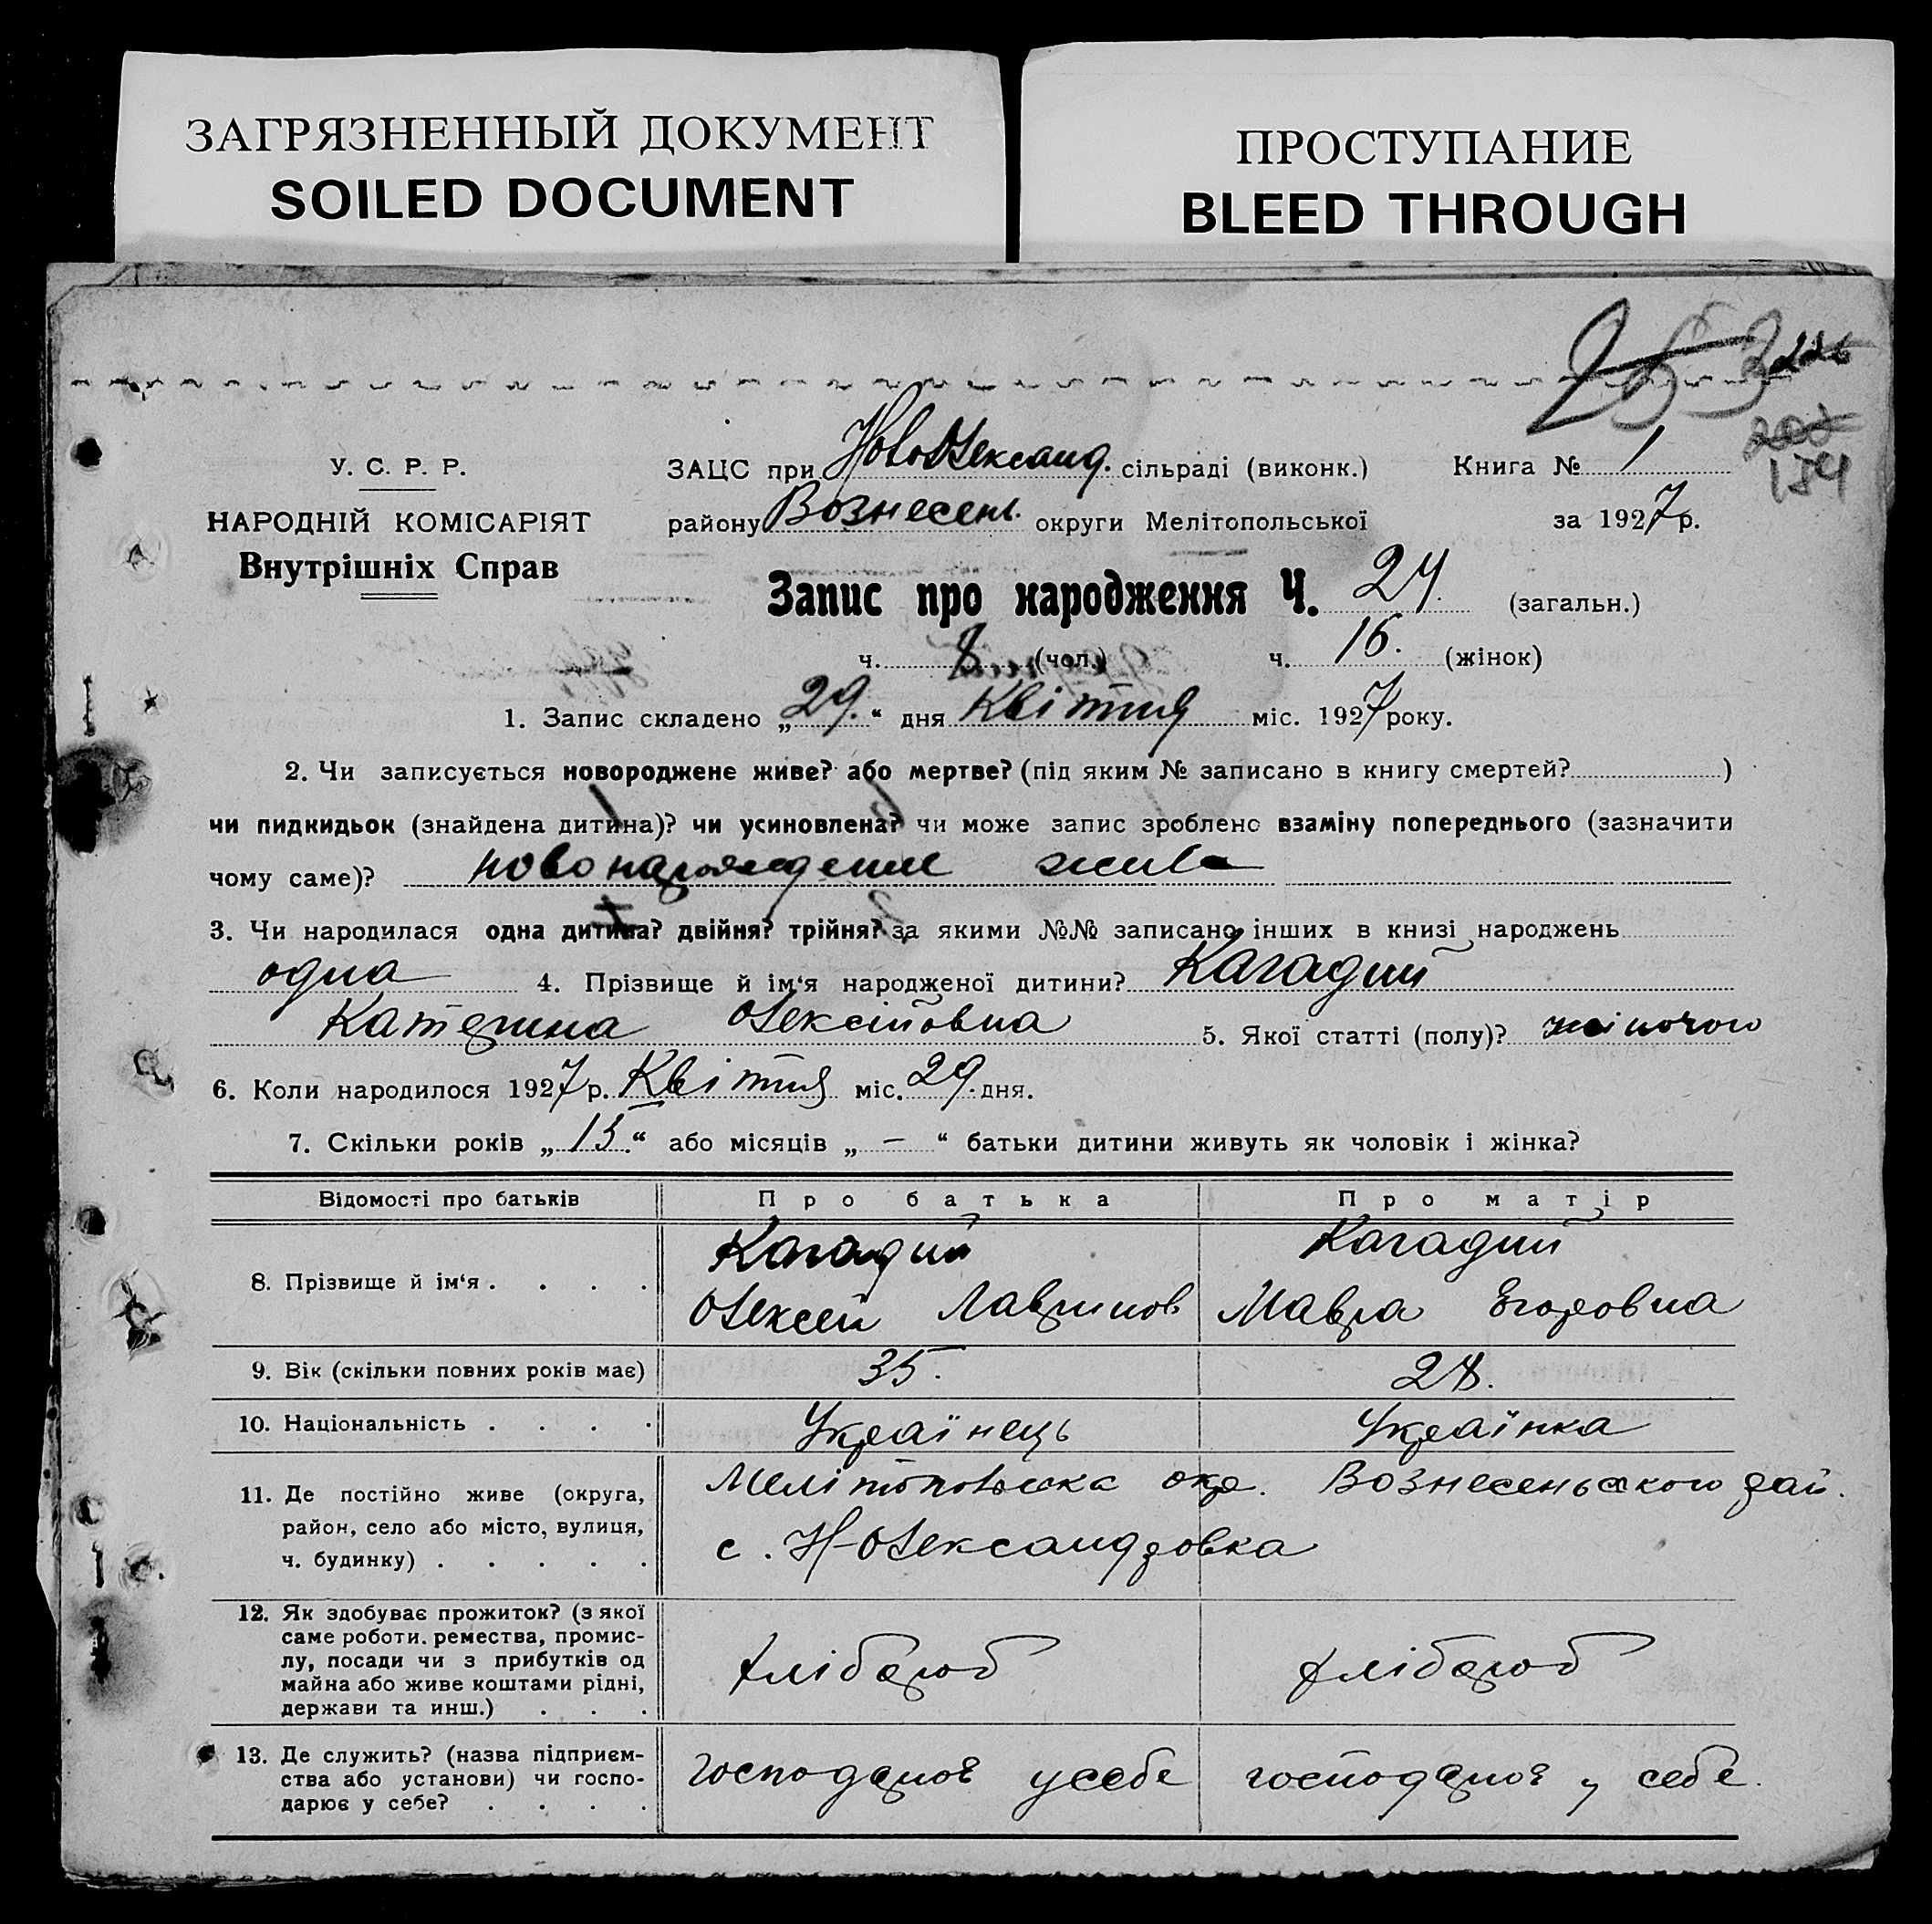 ЗАГРЯЗНЕННЫЙ ДОКУМЕНТ
SOILED DOCUMENT
ПРОСТУПАНИЕ
BLEED THROUGH
253
200
154
У. С. Р. Р.
НАРОДНІЙ КОМІСАРІЯТ
Внутрішніх Справ
ЗАЦС при Новоолександ. сільраді (виконк.) Книга № 1
району Вознесень. округи Мелітопольської за 1927 р.
Запис про народження Ч. 24. (загальн.)
ч. 8 (чол.) ч. 16. (жінок)
1. Запис складено „29.“ дня Квітня міс. 1927 року.
2. Чи записується новороджене живе? або мертве? (під яким № записано в книгу смертей? )
чи пидкидьок (знайдена дитина)? чи усиновлена? чи може запис зроблено взаміну попереднього (зазначити
чому саме)? живе
3. Чи народилася одна дитина? двійня? трійня? за якими №№ записано інших в книзі народжень
одна 4. Прізвище й ім‘я народженої дитини? Кагадий
Катерина Олексійовна 5. Якої статті (полу)? жіночого
6. Коли народилося 1927 р. Квітня міс. 29. дня.
7. Скільки років „15.“ або місяців „—“ батьки дитини живуть як чоловік і жінка?
Відомості про батьків Про батька Про матір
8. Прізвище й ім‘я . . . . Кагадий Кагадий
Олексей Лавринов Мавра Егоровна
9. Вік (скільки повних років має) 35. 28.
10. Національність . . . . Українець Українка
11. Де постійно живе (округа, район, село або місто, вулиця, ч. будинку) . . . . . Мелітопольська окр. Вознесеньского рай.
с. Н-Олександровка
12. Як здобуває прожиток? (з якої саме роботи. ремества, промислу, посади чи з прибутків од майна або живе коштами рідні, держави та инш.) . . . хлібороб хлібороб
13. Де служить? (назва підприємства або установи) чи господарює у себе? . . . . господарює усебе господарює у себе.